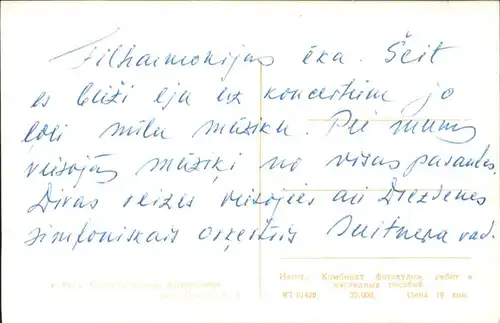 Filharmonijas ēka. Šeit
es bieži eju uz koncertiem jo
ļoti mīlu mūziku. Pie mums
viesojās mūziķi no visas pasaules.
Divas reizes viesojies arī Drezdenes
simfoniskais orķestris Suitnera vad.
Изгот.: Комбинат фотохудож. работ и
наглядных пособий
20.000. Цена 10 коп.